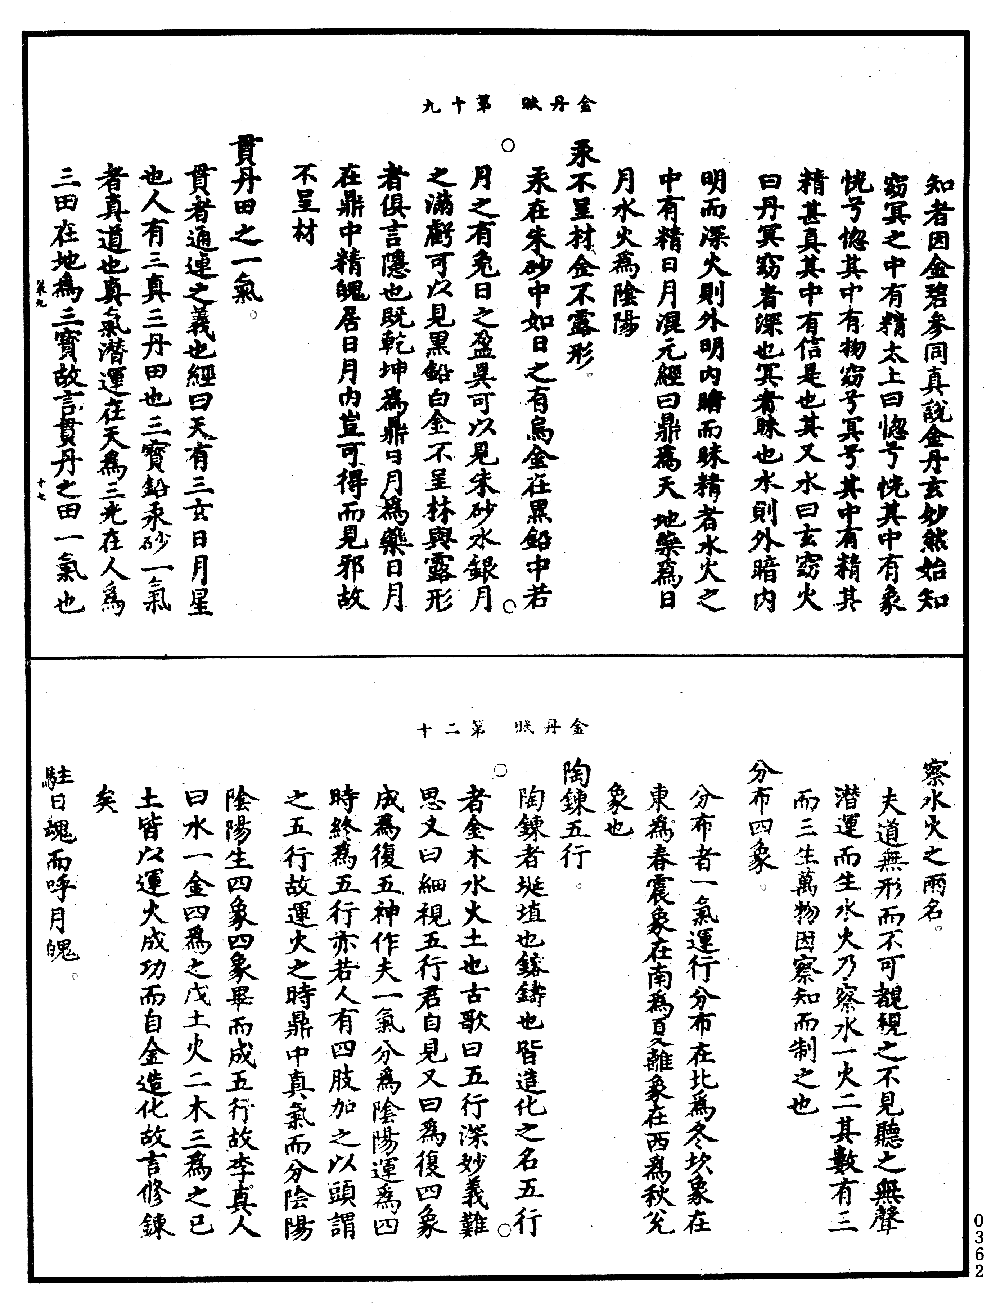 金丹賦　第十九
知者因金碧參同真說金丹玄妙然始知
窈冥之中有精太上曰惚兮恍其中有象
恍兮惚其中有物窈兮冥兮其中有精其
精甚真其中有信是也其又水曰玄窈火
曰丹冥窈者深也冥者昧也水則外暗內
明而深火則外明內暗而昧精者水火之
中有精日月混元經曰鼎為天地藥為日
月水火為陰陽
汞不呈材金不露形。
汞在朱砂中如日之有烏金在黑鉛中若
月之有兔日之盈昃可以見朱砂水銀月
之滿虧可以見黑鉛白金不呈材與露形
者俱言隱也既乾坤為鼎日月為藥日月
在鼎中精魄居日月內豈可得而見邪故
不呈材
貫丹田之一氣。
貫者通連之義也經曰天有三玄日月星
也人有三真三丹田也三寶鉛汞砂一氣
者真道也真氣潛運在天為三光在人為
三田在地為三寶故言貫丹之田一氣也
金丹賦　第二十
察水火之兩名。
夫道無形而不可覩視之不見聽之無聲
潛運而生水火乃察水一火二其數有三
而三生萬物因察知而制之也
分布四象。
分布者一氣運行分布在北為冬坎象在
東為春震象在南為夏離象在西為秋兌
象也
陶鍊五行。
陶鍊者埏埴也鎔鑄也皆造化之名五行
者金木水火土也古歌曰五行深妙義難
思又曰細視五行君自見又曰為復四象
成為復五神作夫一氣分為陰陽運為四
時終為五行亦若人有四肢加之以頭謂
之五行故運火之時鼎中真氣而分陰陽
陰陽生四象四象畢而成五行故李真人
曰水一金四為之戊土火二木三為之己
土皆以運火成功而自金造化故言修鍊
矣
駐日魂而呼月魄。
0362